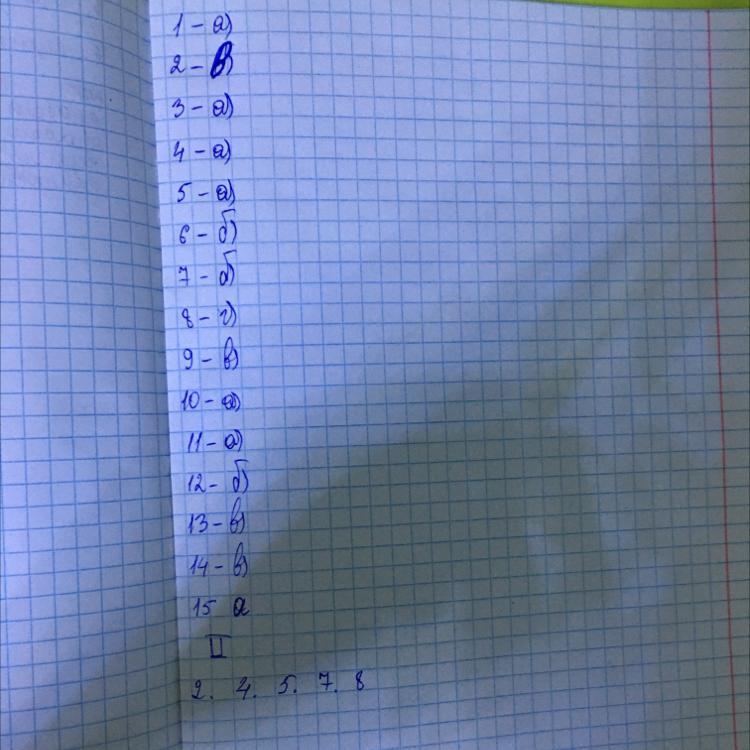 1 - а)
2 - в)
3 - а)
4 - а)
5 - а)
6 - б)
7 - б)
8 - г)
9 - в)
10 - а)
11 - а)
12 - б)
13 - в)
14 - в)
15 а
II
2. 4. 5. 7. 8